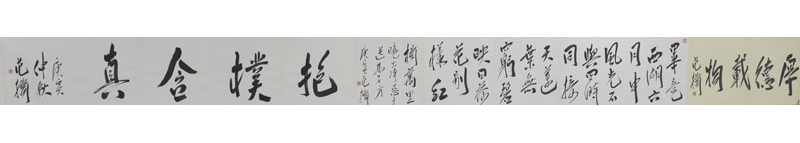 厚德載物
范
畢竟
西湖六
月中
風光不
與四時
同接
天蓮
葉無
窮碧
映日荷
花別
樣紅
楊萬里
曉出淨慈寺
送林子方
庚寅范
抱樸含真
庚寅
仲秋
范